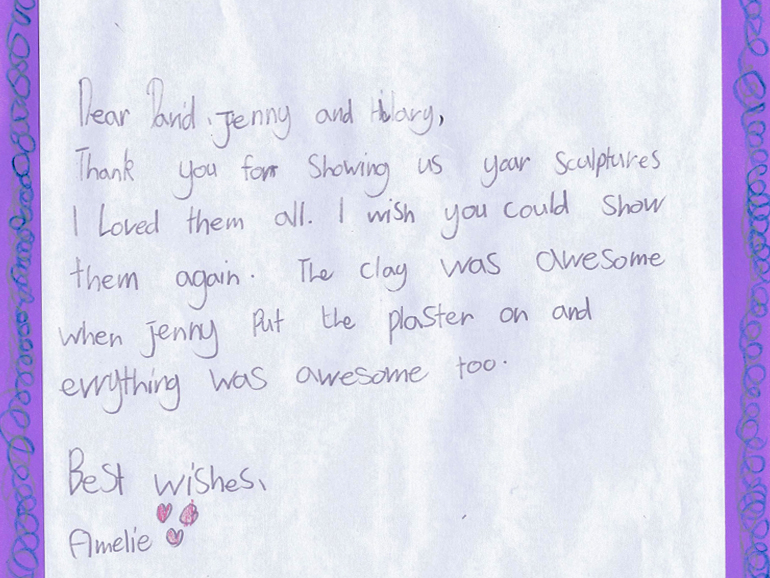 Dear David, Jenny and Hilary,
Thank you for Showing us your Sculptures
I Loved them all. I wish you could Show
them again. The clay was awesome
when Jenny Put the plaster on and
evrything was awesome too.
Best wishes,
Amelie